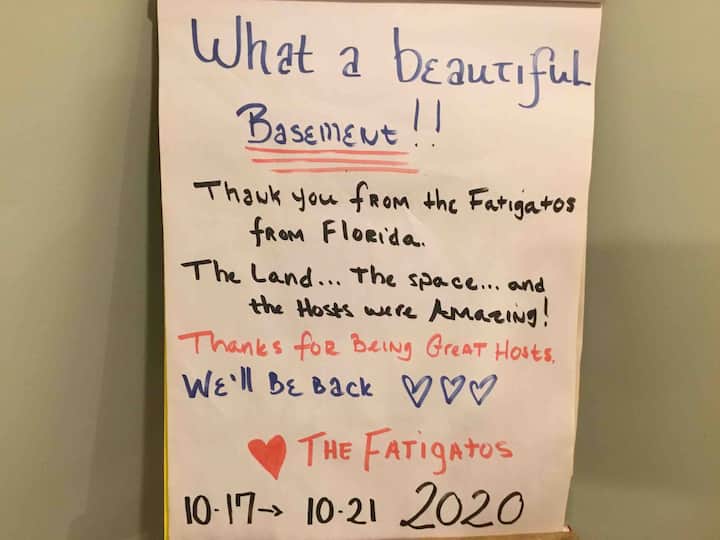 What a beautiful
Basement!!
Thank you from the Fatigatos
from Florida.
The Land... The space... and
the Hosts were Amazing!
Thanks for Being Great Hosts.
We'll Be Back ♡♡♡
♥ The Fatigatos
10-17→ 10-21 2020